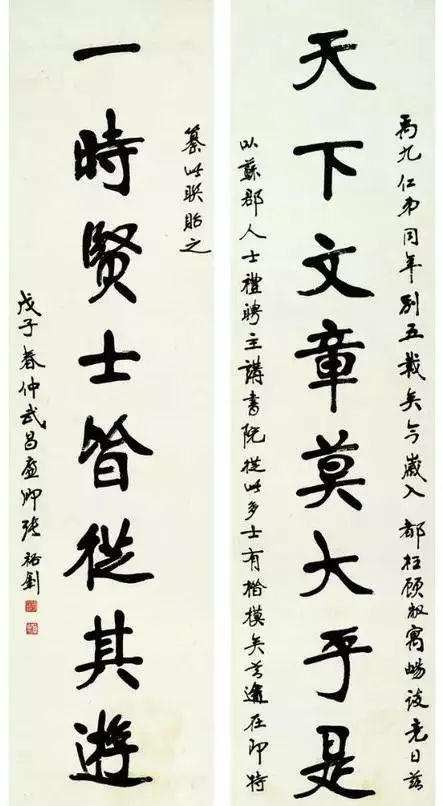 禹九仁弟同年別五載矣今歲入都枉顧敝寓暢談竟日茲
天下文章莫大乎是
以蘇郡人士禮聘主講書院從此多士有楷模矣首途在即特
纂此聯貽之
一時賢士皆從其遊
戊子春仲武昌廉卿張裕釗